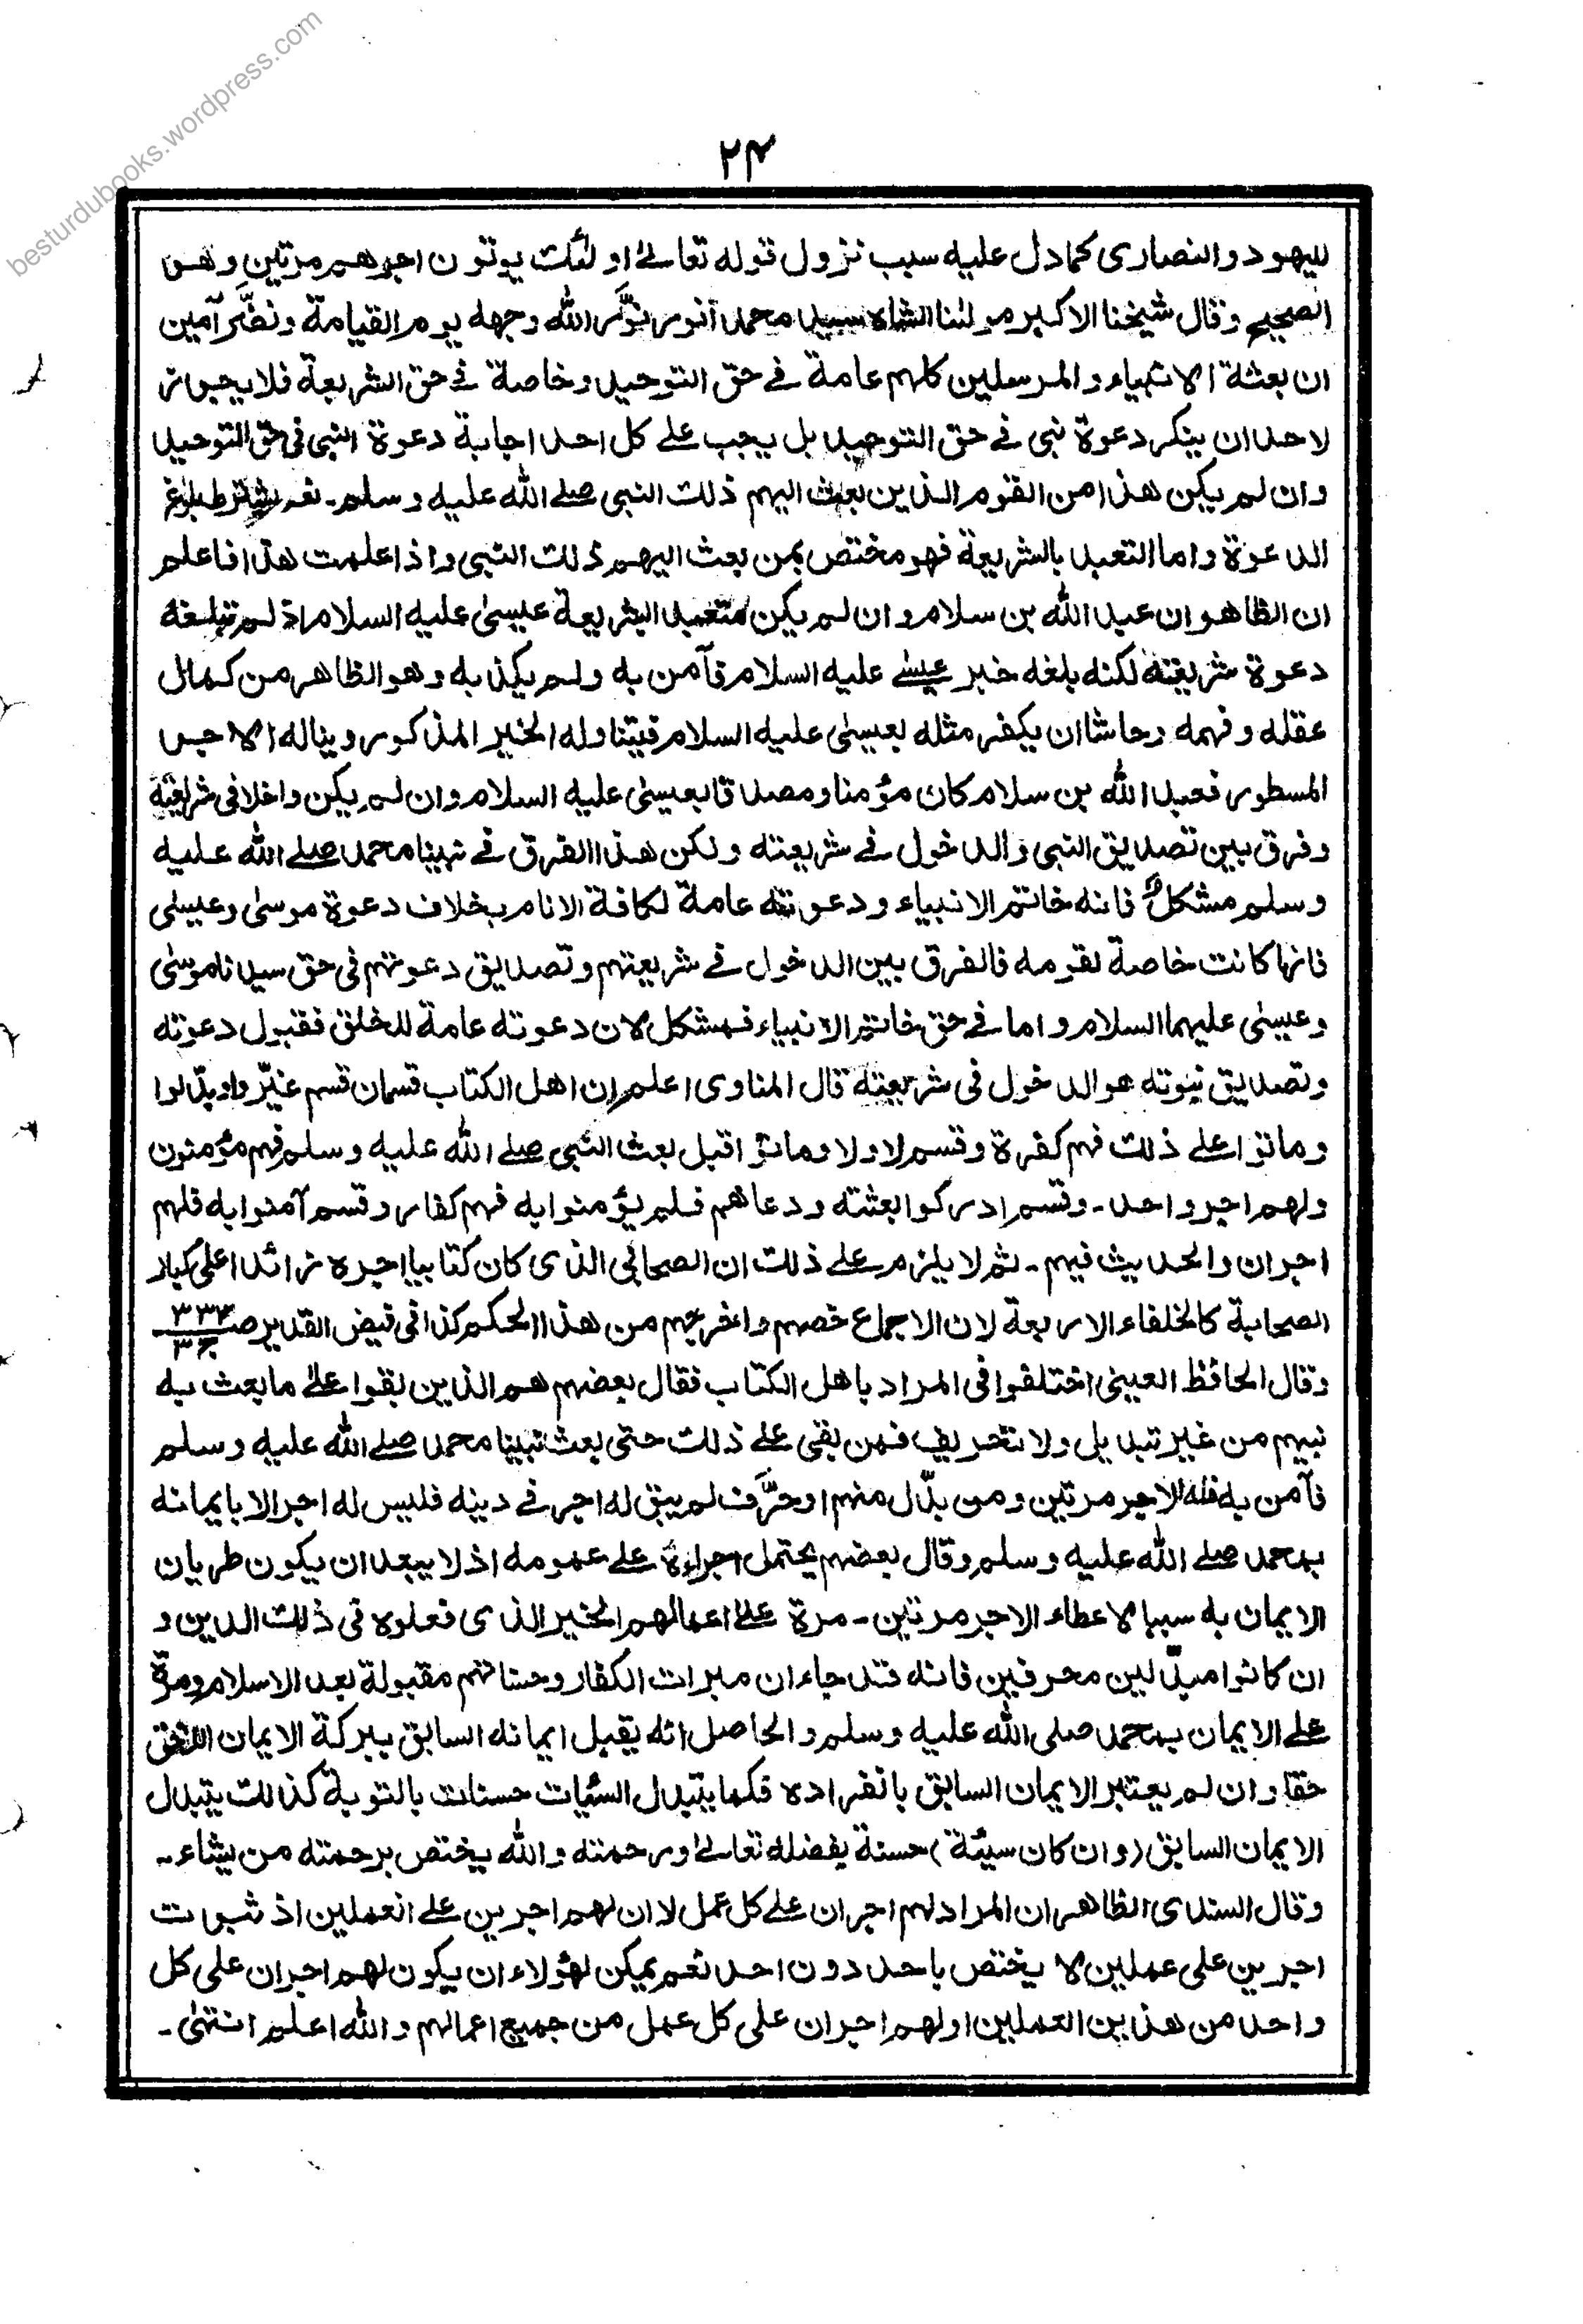 besturdubooks.wordpress.com
٢٤
لليهود والنصارى كما دل عليه سبب نزول قوله تعالىٰ اولئك يوتون اجرهم مرتين وهو
الصحيح وقال شيخنا الاكبر مولٰنا الشاه سيد محمد انور نوَّر الله وجهه يوم القيامة ونضَّر آمين
ان بعثة الانبياء والمرسلين كلهم عامة فى حق التوحيد وخاصة فى حق الشريعة فلا يجوز
لاحد ان ينكر دعوة نبى فى حق التوحيد بل يجب على كل احد اجابة دعوة النبى فى حق التوحيد
وان لم يكن هذا من القوم الذين بعث اليهم ذلك النبى صلى الله عليه وسلم۔ نعم يشترط بلوغ
الدعوة واما التعبد بالشريعة فهو مختص بمن بعث اليهم ذلك النبى واذا علمت هذا فاعلم
ان الظاهر ان عبد الله بن سلام وان لم يكن متعبدا بشريعة عيسىٰ عليه السلام اذ لم تبلغه
دعوة شريعته لكنه بلغه خبر عيسى عليه السلام فآمن به ولم يكذبه وهو الظاهر من كمال
عقله وفهمه وحاشا ان يكفر مثله بعيسىٰ عليه السلام فيتناوله الخبر المذكور ويناله الاجر
المسطور فعبد الله بن سلام كان مؤمنا ومصدقا بعيسىٰ عليه السلام وان لم يكن داخلا فى شريعته
وفرق بين تصديق النبى والدخول فى شريعته ولكن هذا الفرق فى نبينا محمد صلى الله عليه
وسلم مشكل فانه خاتم الانبياء ودعوته عامة لكافة الانام بخلاف دعوة موسىٰ وعيسىٰ
فانها كانت خاصة لقومه فالفرق بين الدخول فى شريعتهم وتصديق دعوتهم فى حق سيدنا موسىٰ
وعيسىٰ عليهما السلام واما فى حق خاتم الانبياء فمشكل لان دعوته عامة للخلق فقبول دعوته
وتصديق نبوته هو الدخول فى شريعته قال المناوى اعلم ان اهل الكتاب قسمان قسم غيّروا وبدّلوا
وماتوا على ذلك فهم كفرة وقسم لا ولا وماتوا قبل بعث النبى صلى الله عليه وسلم فهم مؤمنون
ولهم اجر واحد۔ وقسم ادركوا بعثته ودعاهم فلم يؤمنوا به فهم كفار وقسم آمنوا به فلهم
اجران والحديث فيهم۔ ثم لا يلزم على ذلك ان الصحابى الذى كان كتابيا اجره زائد اعلى كبار
الصحابة كالخلفاء الاربعة لان الاجماع خصهم واخرجهم من هذا الحكم كذا فى فيض القدير صـ ٣٣٤ ج ٣
وقال الحافظ العينى اختلفوا فى المراد باهل الكتاب فقال بعضهم هم الذين بقوا على ما بعث به
نبيهم من غير تبديل ولا تحريف فمن بقى على ذلك حتى بعث نبينا محمد صلى الله عليه وسلم
فآمن به فله الاجر مرتين ومن بدّل منهم او حرَّف لم يبق له اجر فى دينه فليس له اجر الا بايمانه
بمحمد صلى الله عليه وسلم وقال بعضهم يحتمل اجراءه على عمومه اذ لا يبعد ان يكون طريان
الايمان به سببا لاعطاء الاجر مرتين۔ مرة على اعمالهم الخير الذى فعلوه فى ذلك الدين و
ان كانوا مبدّلين محرفين فانه قد جاء ان مبرات الكفار وحسناتهم مقبولة بعد الاسلام ومرة
على الايمان بمحمد صلى الله عليه وسلم والحاصل انه يقبل ايمانه السابق ببركة الايمان اللاحق
حقا وان لم يعتبر الايمان السابق بانفراده فكما يتبدل السيئات حسنات بالتوبة كذلك يتبدل
الايمان السابق (وان كان سيئة) حسنة بفضله تعالىٰ ورحمته والله يختص برحمته من يشاء۔
وقال السندى الظاهر ان المراد لهم اجران على كل عمل لا ان لهم اجرين على العملين اذ ثبوت
اجرين على عملين لا يختص باحد دون احد نعم يمكن لهؤلاء ان يكون لهم اجران على كل
واحد من هذين العملين او لهم اجران على كل عمل من جميع اعمالهم والله اعلم انتهىٰ۔